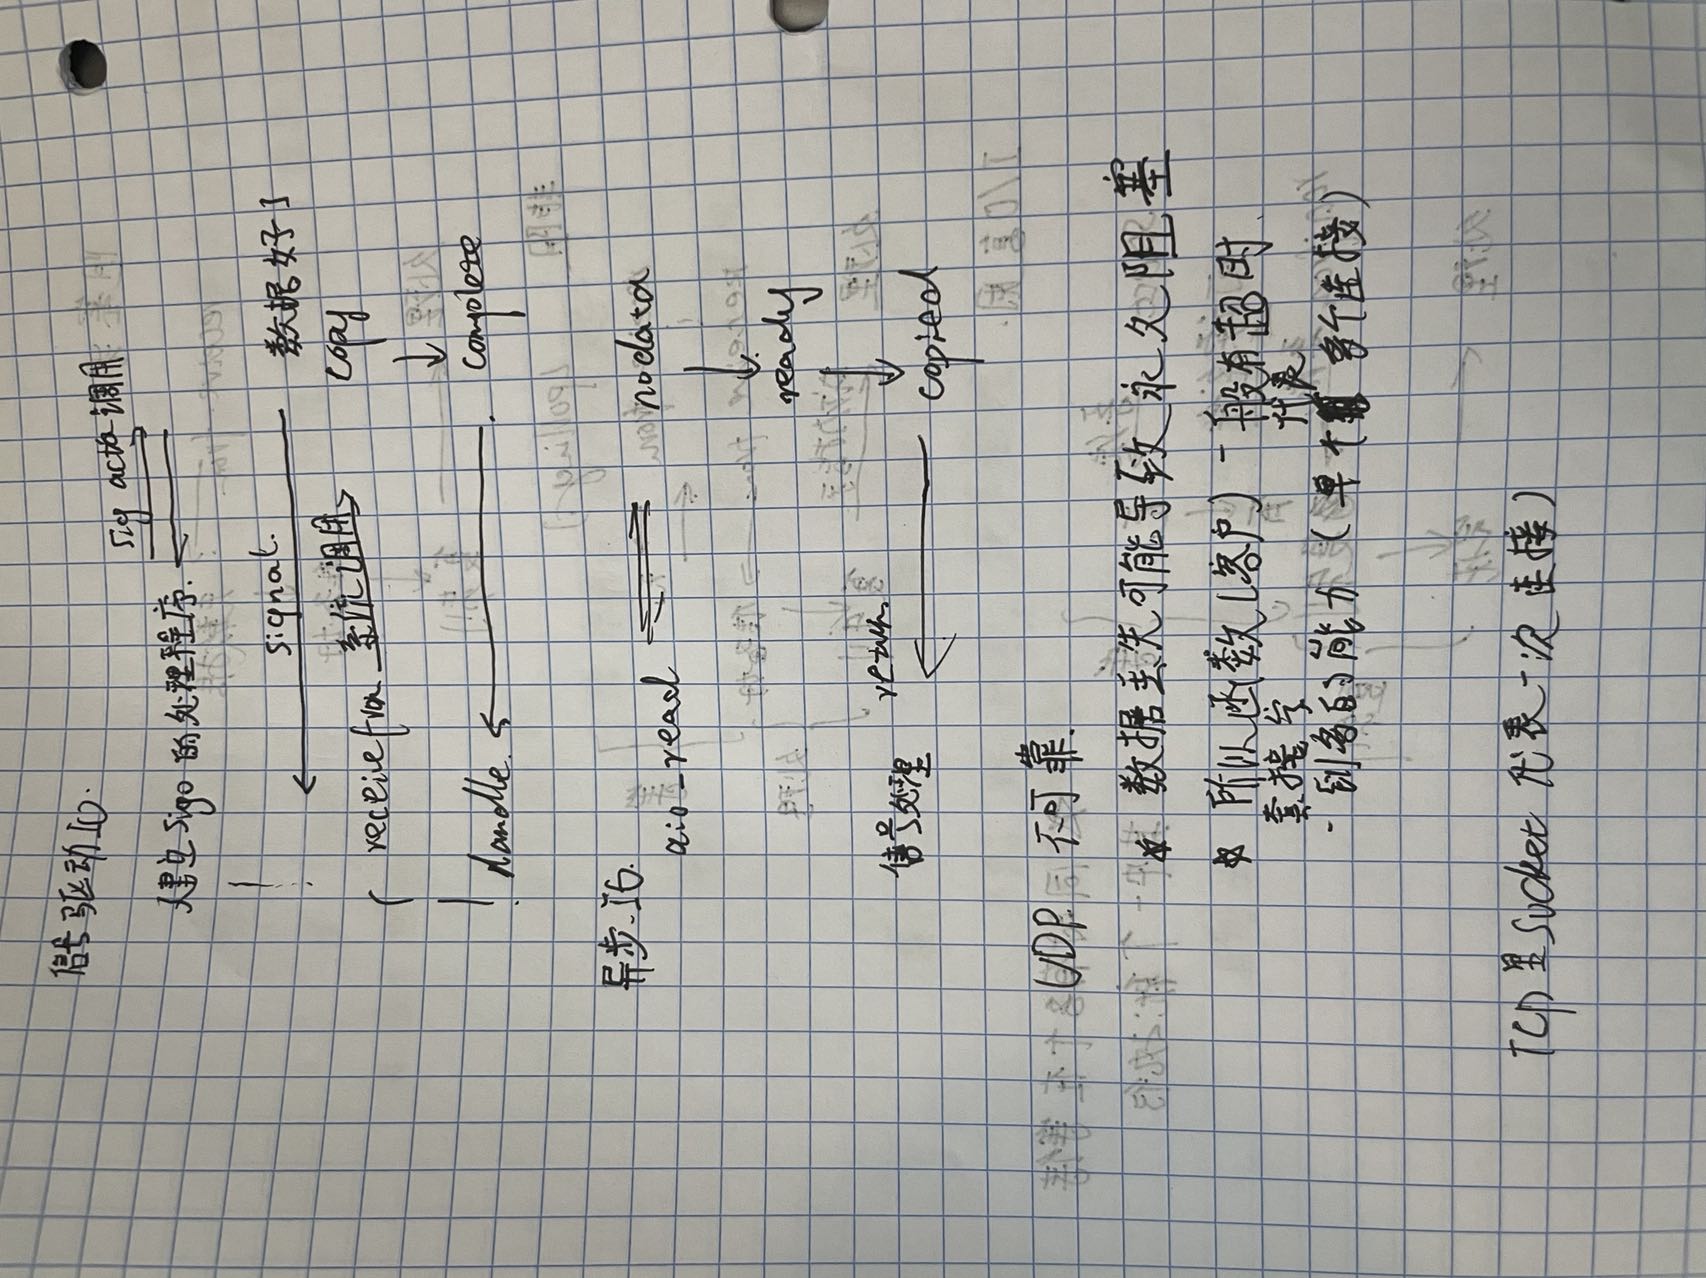 信号驱动IO.
sig actio 调用
建立Sigo 的处理程序.
signal.
数据好了
copy
receive from 系统调用
complete
Handle.
异步IO.
aio_read
nodata
ready
信号处理 return
copied
UDP. 不可靠.
☆ 数据丢失可能导致永久阻塞
☆ 所以函数(客户)一般有超时.
套接字 代表
一到多的能力(单个 多个连接)
TCP里Socket 代表一次连接)